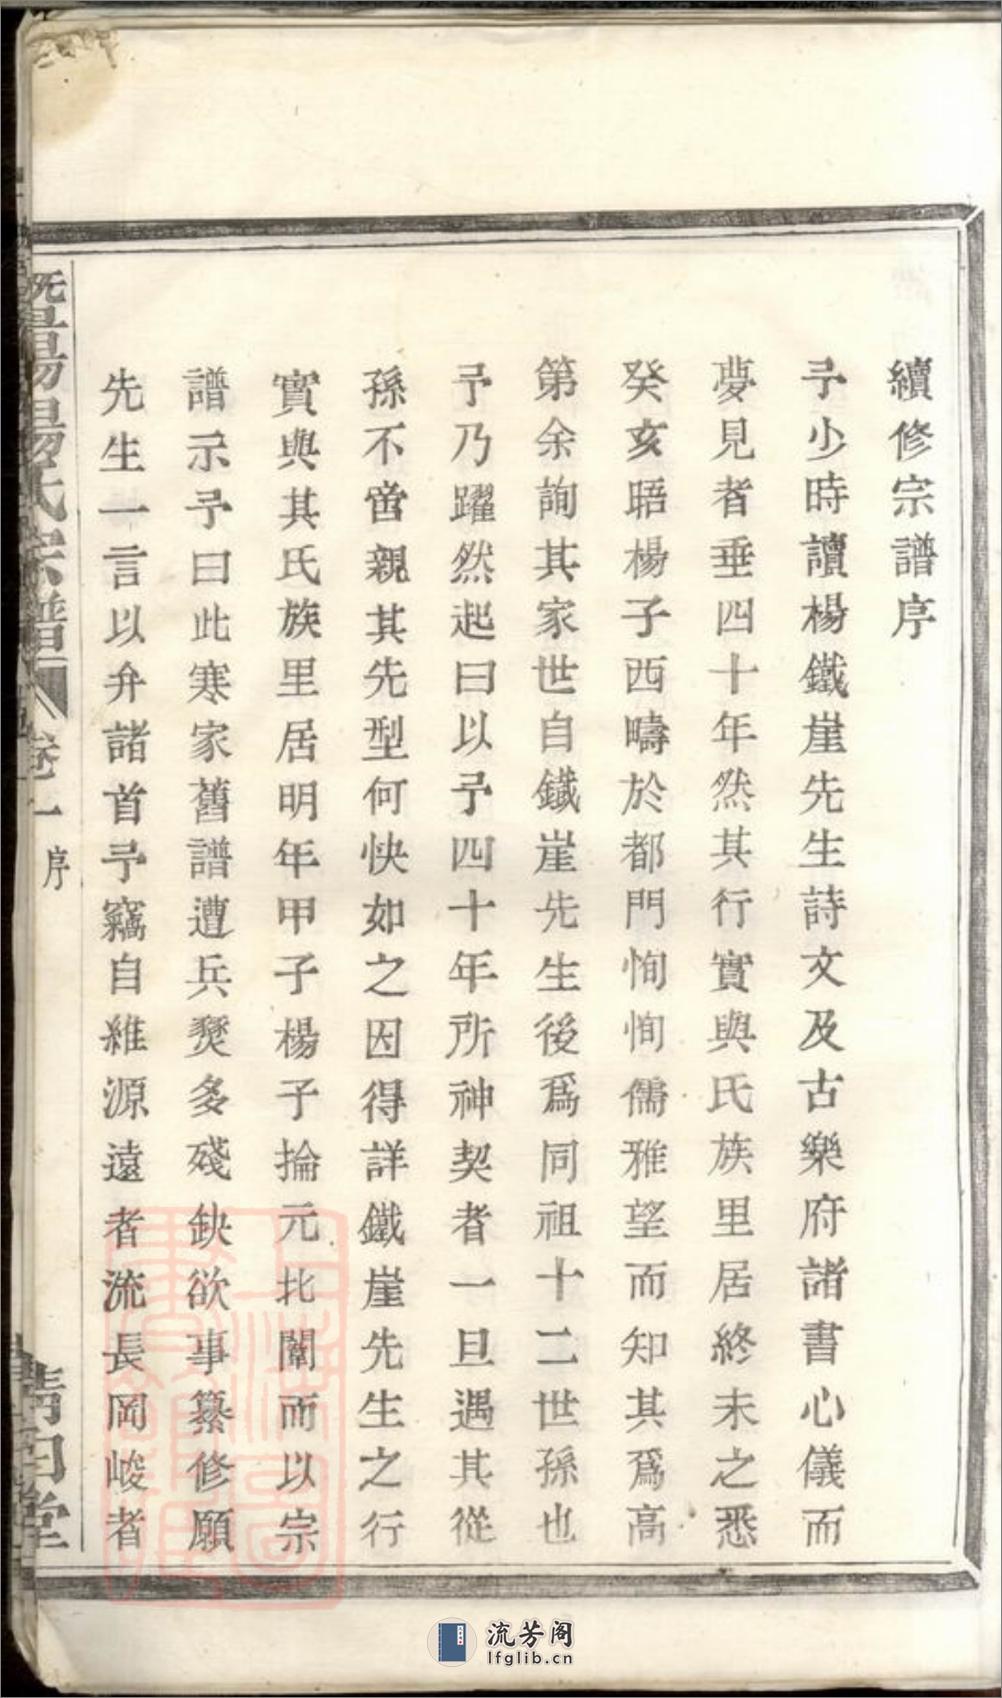 續修宗譜序
予少時讀楊鐵崖先生詩文及古樂府諸書心儀而
夢見者垂四十年然其行實與氏族里居終未之悉
癸亥晤楊子西疇於都門恂恂儒雅望而知其爲高
第余詢其家世自鐵崖先生後爲同祖十二世孫也
予乃躍然起曰以予四十年所神契者一旦遇其從
孫不啻親其先型何快如之因得詳鐵崖先生之行
實與其氏族里居明年甲子楊子掄元北闈而以宗
譜示予曰此寒家舊譜遭兵燹多殘缺欲事纂修願
先生一言以弁諸首予竊自維源遠者流長岡峻者
暨陽楊氏宗譜 卷一 序 清白堂
上海圖書館藏
流芳阁
lfglib.cn